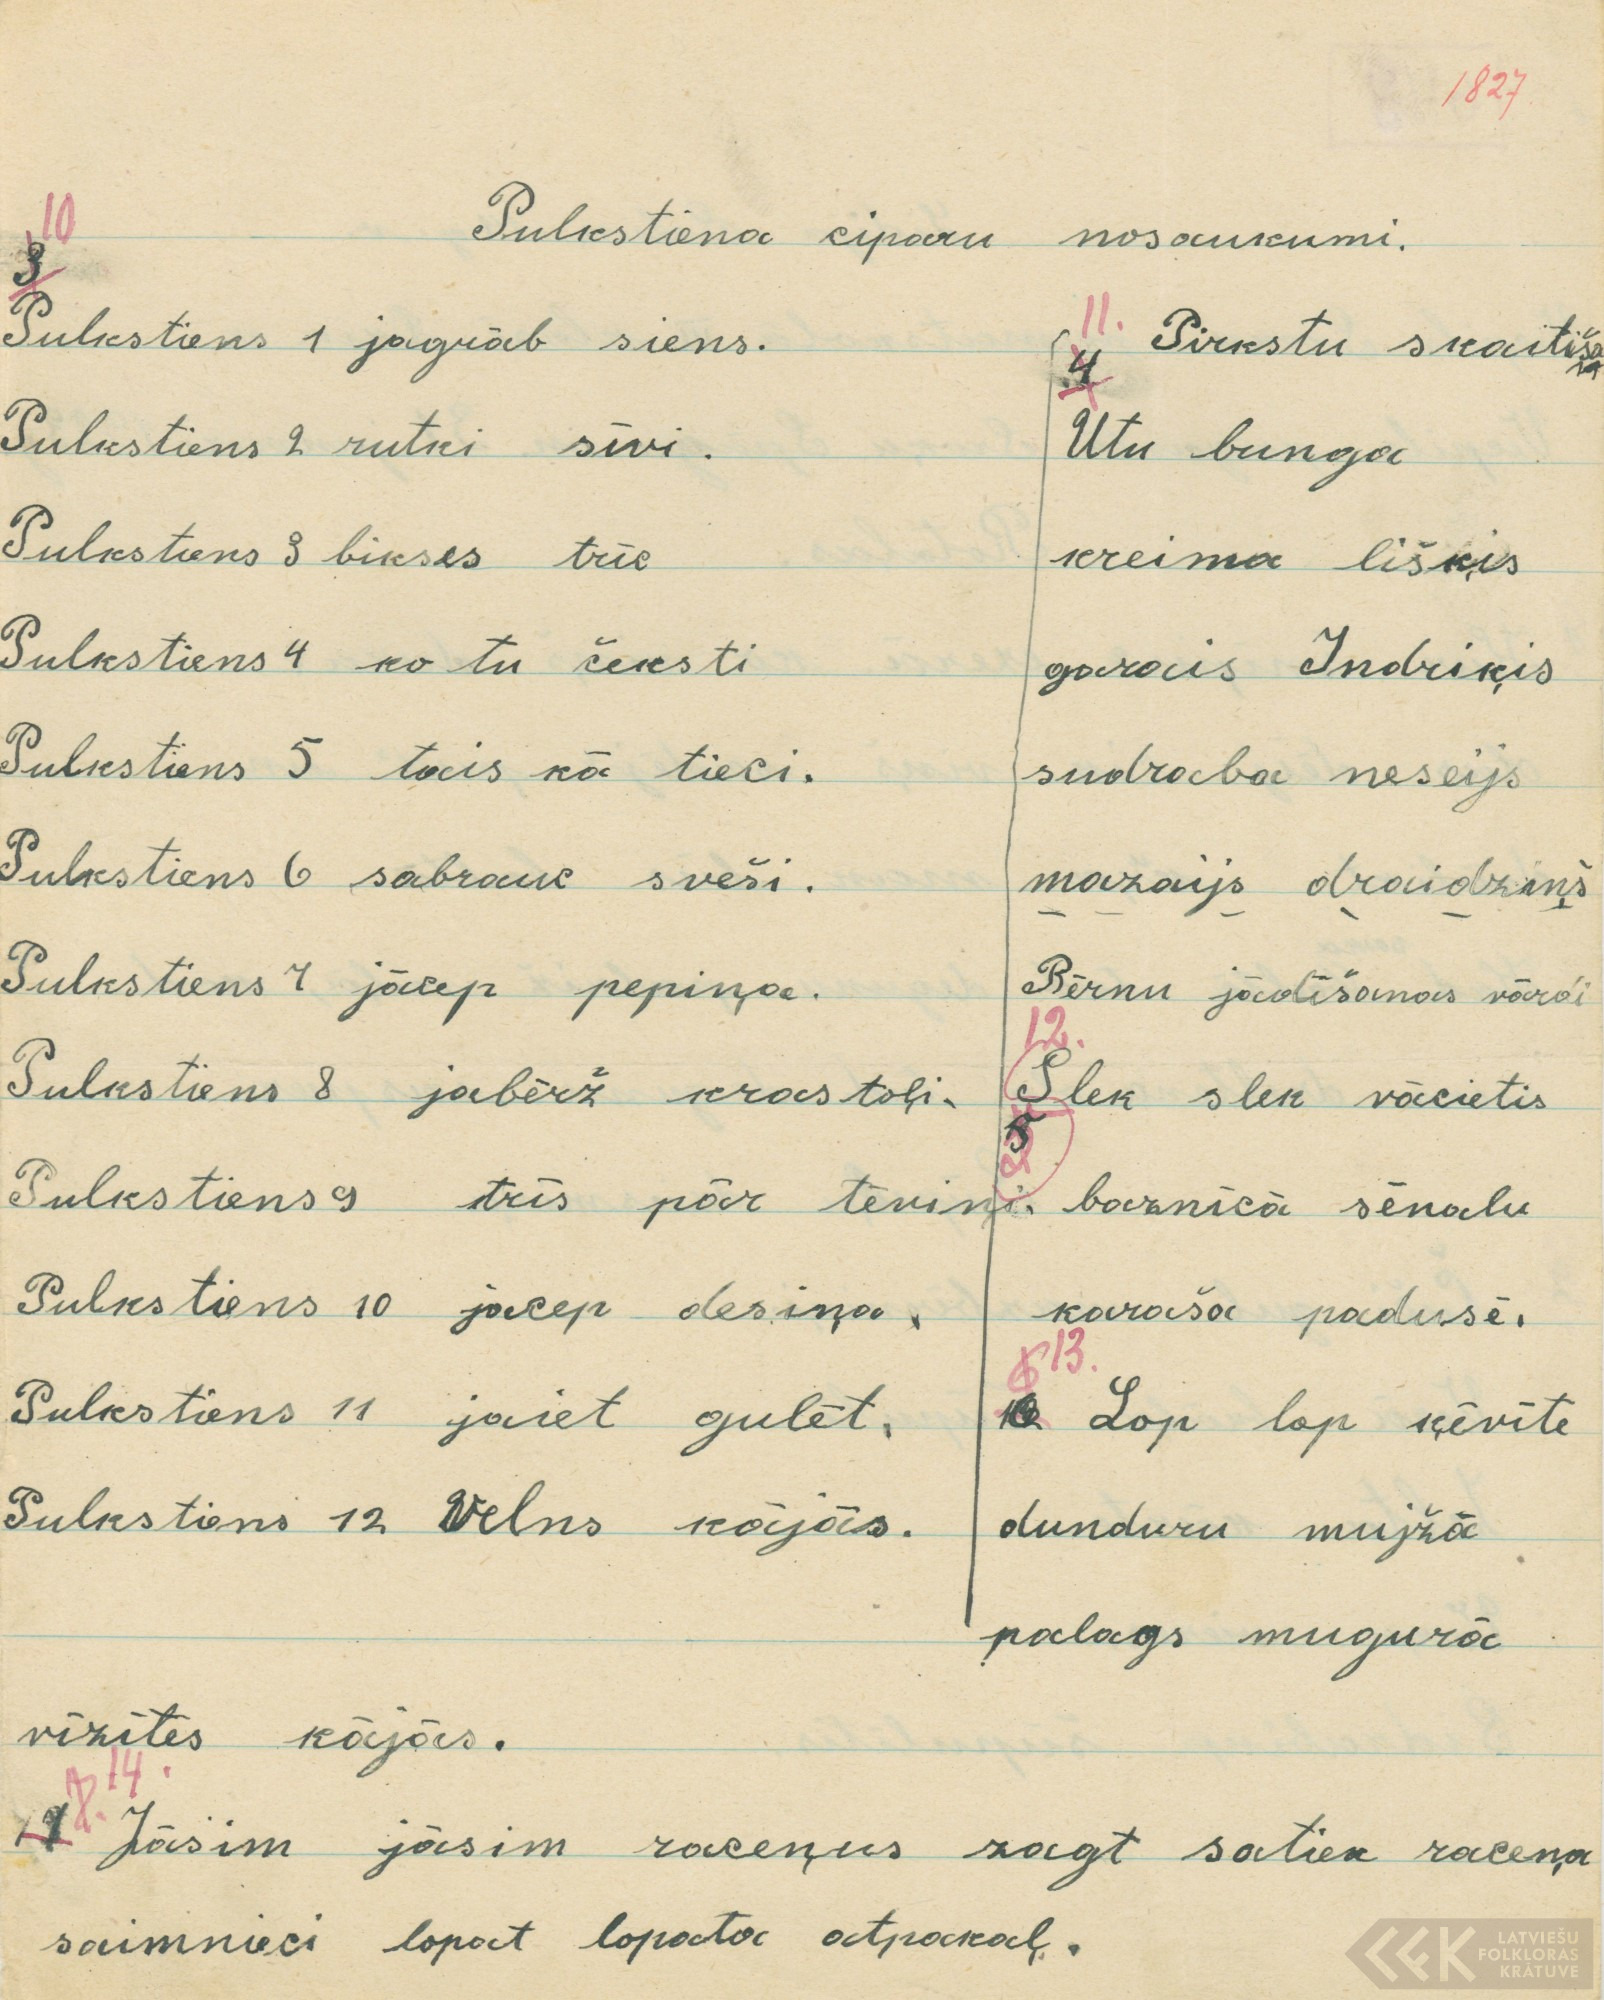 1827
10
3
Pulkstiena ciparu nosaukumi.
Pulkstiens 1 jagrāb siens.
Pulkstiens 2 rutki sīvi.
Pulkstiens 3 bikses trīc
Pulkstiens 4 ko tu čeksti
Pulkstiens 5 tais kā tieci.
Pulkstiens 6 sabrauc sveši.
Pulkstiens 7 jācep pepiņa.
Pulkstiens 8 jabērž krastoļi.
Pulkstiens 9 trīs pār tēviņi.
Pulkstiens 10 jacep desiņa.
Pulkstiens 11 jaiet gulēt.
Pulkstiens 12 Velns kājās.
11.
4 Pirkstu skaitīšana
Utu bunga
kreima lišķis
garais Indriķis
sudraba neseijs
mazaijs draidziņš
Bērnu jādīšanas vārdi
12.
Slek slek vācietis
5
baznīcā sēnalu
karaša padusē.
13.
Lop lop ķēvīte
dunduru mujžā
palags mugurā
vīzītēs kājās.
14.
7 Jāsim jāsim raceņus zagt satiek raceņa
saimnieci lopat lopata atpakaļ.
LATVIEŠU
FOLKLORAS
KRĀTUVE